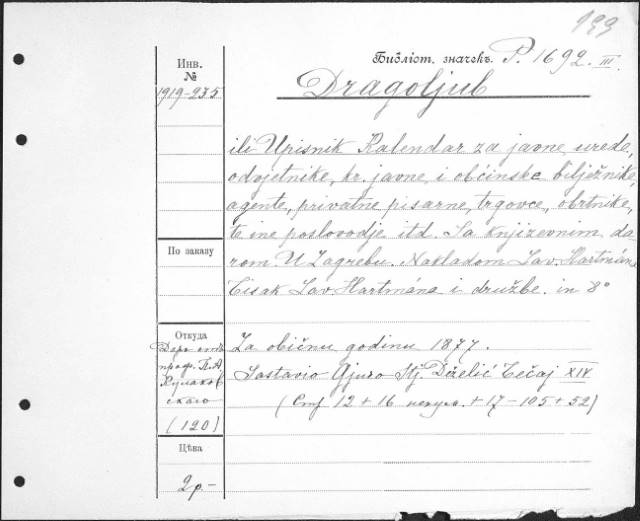 199
Инв.
№
1919-235
Библiот. значекъ. P. 1692. III.
Dragoljub
ili Upisnik Kalendar za javne urede,
odvjetnike, kr. javne i občinske bilježnike
agente, privatne pisarne, trgovce, obrtnike,
te ine poslovodje itd. Sa književnim da
rom. U Zagrebu. Nakladom Lav. Hartmána
Tisak Lav. Hartmána i družbe. in 8°
По заказу
Откуда
Даръ отъ
проф. П. А
Кулаков
скаго
(120)
Za običnu godinu 1877.
Sastavio Gjuro Stj. Dželić Tečaj XIV
(Стр 12 + 16 ненум. + 17 - 105 + 52)
Цѣна
2 р. -